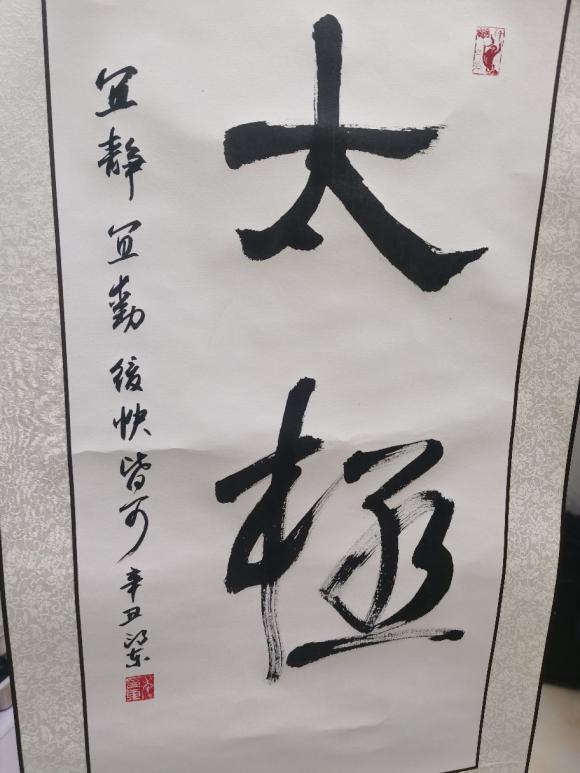 太极
宜静宜動缓快皆可 辛丑 梁